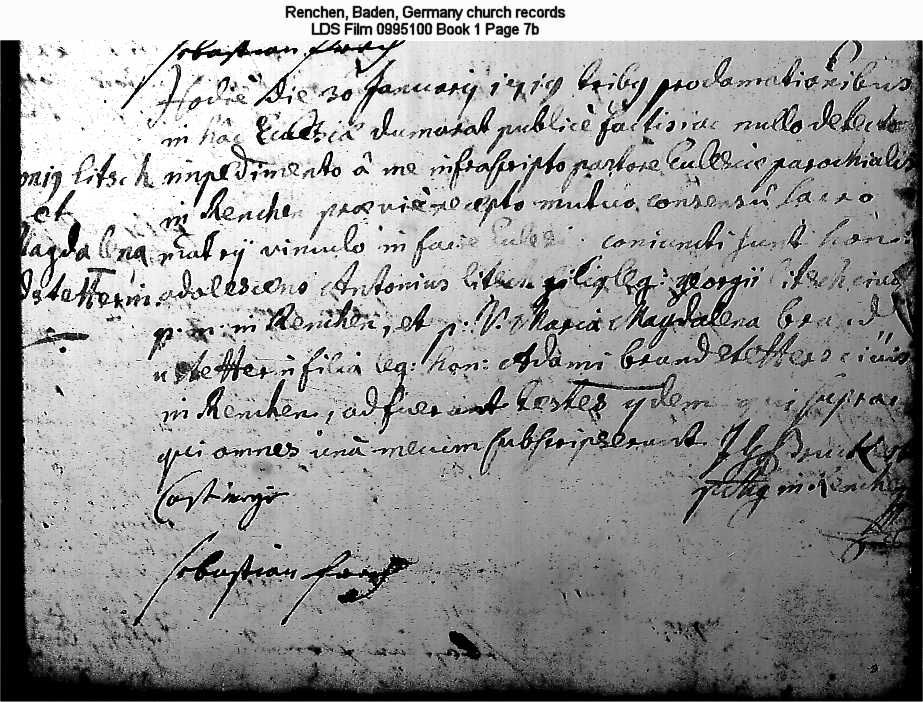 Renchen, Baden, Germany church records
LDS Film 0995100 Book 1 Page 7b
Sebastian
Hodie die 30 Januarij tribg proclamationibus
in hac Eccl:iâ dumaxat publicè factis iac nullo detecto
impedimento â me infrascripto pastore Ecclesiæ parochialis
in Renchen praeviè recepto mutuo consensû sacro
matrij vinculo in facie Ecclesi coniuncti sunt hon:
adolescens Antonius litsch filig leg: georgii litsch civis
p. m. in Renchen, et p. V. Maria Magdalena brand
stetterin filia leg: hon: Adami brandstetters civis
in Renchen, adfuerant testes ydem qui supra
qui omnes unà mecum subscripserunt
litsch
et
Magdalena
dstetterin
in Renchen
Sebastian